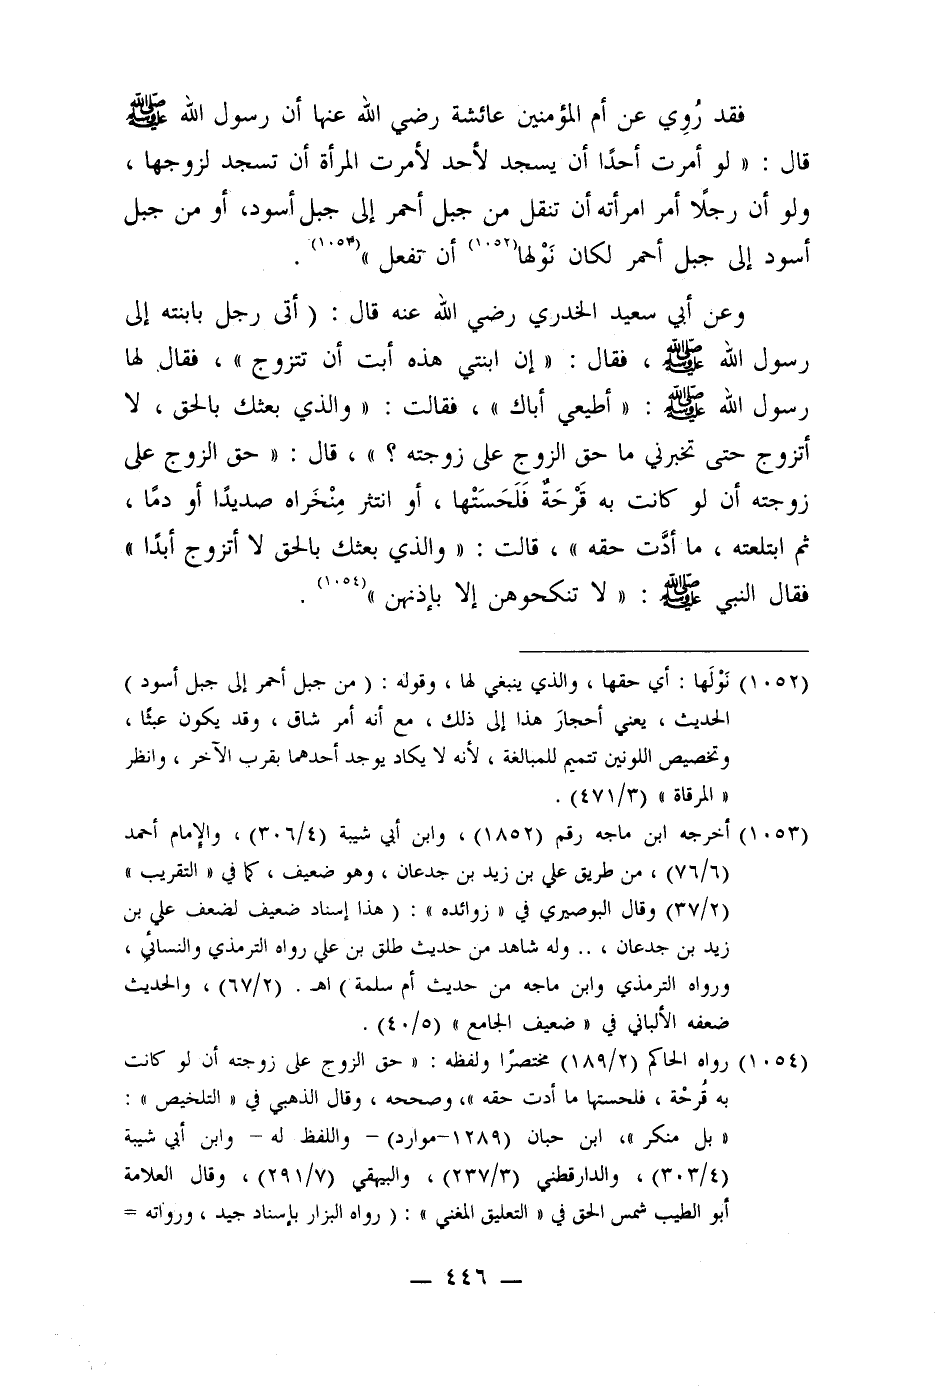 فقد رُوِي عن أم المؤمنين عائشة رضي الله عنها أن رسول الله ﷺ
قال : « لو أمرت أحدًا أن يسجد لأحد لأمرت المرأة أن تسجد لزوجها ،
ولو أن رجلًا أمر امرأته أن تنقل من جبل أحمر إلى جبل أسود، أو من جبل
أسود إلى جبل أحمر لكان نَوْلها(١٠٥٢) أن تفعل »(١٠٥٣) .
وعن أبي سعيد الخدري رضي الله عنه قال : ( أتى رجل بابنته إلى
رسول الله ﷺ ، فقال : « إن ابنتي هذه أبت أن تتزوج » ، فقال لها
رسول الله ﷺ : « أطيعي أباك » ، فقالت : « والذي بعثك بالحق ، لا
أتزوج حتى تخبرني ما حق الزوج على زوجته ؟ » ، قال : « حق الزوج على
زوجته أن لو كانت به قَرْحَةٌ فَلَحَسَتْها ، أو انتثر مِنْخَراه صديدًا أو دمًا ،
ثم ابتلعته ، ما أدَّت حقه » ، قالت : « والذي بعثك بالحق لا أتزوج أبدًا »
فقال النبي ﷺ : « لا تنكحوهن إلا بإذنهن »(١٠٥٤) .
(١٠٥٢) نَوْلَها : أي حقها ، والذي ينبغي لها ، وقوله : ( من جبل أحمر إلى جبل أسود )
الحديث ، يعني أحجارَ هذا إلى ذلك ، مع أنه أمر شاق ، وقد يكون عبثًا ،
وتخصيص اللونين تتميم للمبالغة ، لأنه لا يكاد يوجد أحدهما بقرب الآخر ، وانظر
« المرقاة » (٤٧١/٣) .
(١٠٥٣) أخرجه ابن ماجه رقم (١٨٥٢) ، وابن أبي شيبة (٣٠٦/٤) ، والإمام أحمد
(٧٦/٦) ، من طريق علي بن زيد بن جدعان ، وهو ضعيف ، كما في « التقريب »
(٣٧/٢) وقال البوصيري في « زوائده » : ( هذا إسناد ضعيف لضعف علي بن
زيد بن جدعان ، .. وله شاهد من حديث طلق بن علي رواه الترمذي والنسائي ،
ورواه الترمذي وابن ماجه من حديث أم سلمة ) اهـ . (٦٧/٢) ، والحديث
ضعفه الألباني في « ضعيف الجامع » (٤٠/٥) .
(١٠٥٤) رواه الحاكم (١٨٩/٢) مختصرًا ولفظه : « حق الزوج على زوجته أن لو كانت
به قُرحْة ، فلحستها ما أدت حقه »، وصححه ، وقال الذهبي في « التلخيص » :
« بل منكر »، ابن حبان (١٢٨٩-موارد) – واللفظ له – وابن أبي شيبة
(٣٠٣/٤) ، والدارقطني (٢٣٧/٣) ، والبيهقي (٢٩١/٧) ، وقال العلامة
أبو الطيب شمس الحق في « التعليق المغني » : ( رواه البزار بإسناد جيد ، ورواته =
— ٤٤٦ —